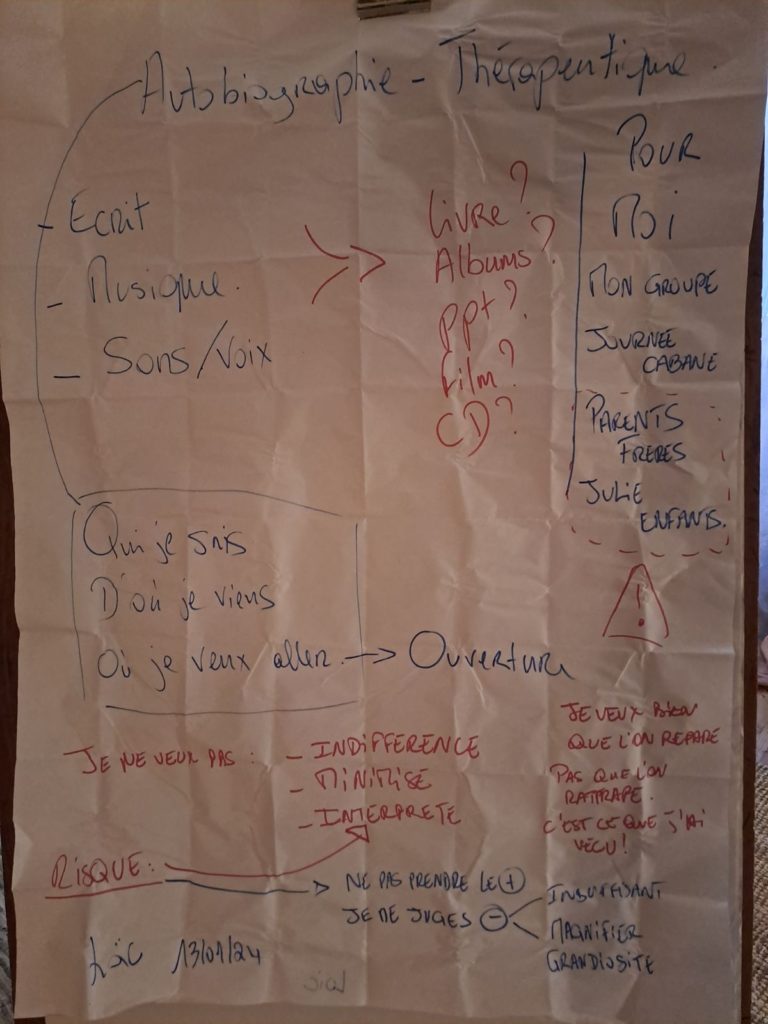 Autobiographie - Thérapeutique.
- Ecrit
- Musique.
- Sons/Voix
Livre?
Albums?
ppt?
Film?
CD?
POUR
MOI
MON GROUPE
JOURNEE
CABANE
PARENTS
FRERES
JULIE
ENFANTS.
!
Qui je suis
D'où je viens
Où je veux aller. → OUVERTURE
JE NE VEUX PAS :
- INDIFFERENCE
- MINIMISE
- INTERPRETE
JE VEUX BIEN
QUE L'ON REPARE
PAS QUE L'ON
RATTRAPE.
C'EST CE QUE J'AI
VÉCU!
RISQUE:
NE PAS PRENDRE LE +
JE ME JUGES -
INSUFFISANT
MAGNIFIER
GRANDIOSITE
Loïc 13/01/24